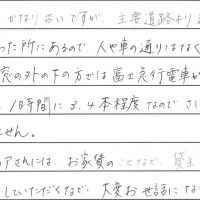 かなり古いですが、主要道路より
った所にあるので、人や車の通りはなく
窓の外の下の方では富士急行電車が
1時間に3,4本程度なのでさし
せん。
アさんには、お家賃のことなど、貸主
していただくなど、大変お世話にな